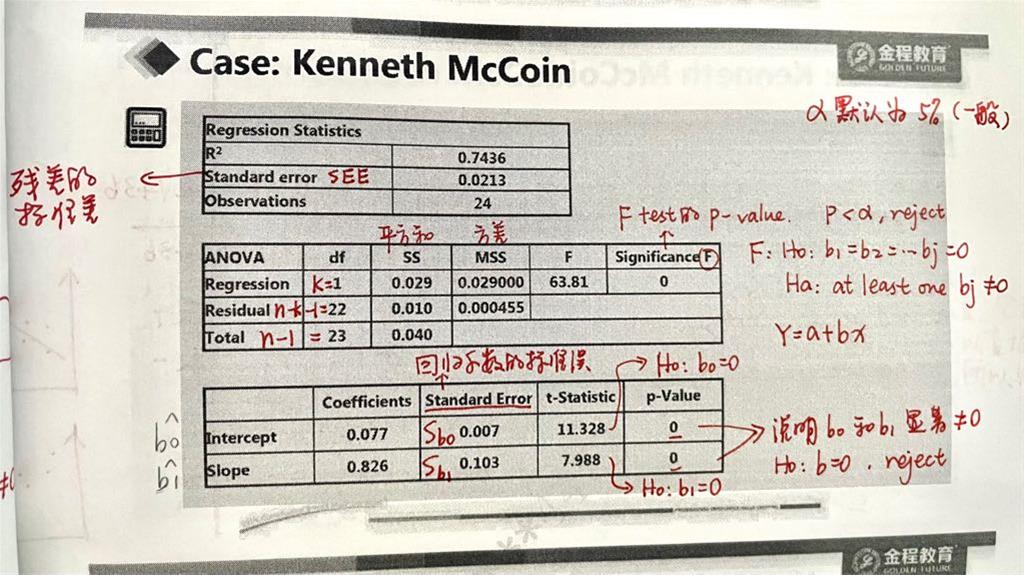 Case: Kenneth McCoin
金程教育
GOLDEN FUTURE
α 默认为 5% (一般)
Regression Statistics
R² 0.7436
Standard error SEE 0.0213
Observations 24
残差的
标准差
F test的 p-value. P<α, reject
平方和 方差
ANOVA df SS MSS F Significance F
Regression k=1 0.029 0.029000 63.81 0
Residual n-k-1=22 0.010 0.000455
Total n-1 = 23 0.040
F: H0: b1=b2=...bj=0
Ha: at least one bj≠0
Y=a+bx
回归系数的标准误
H0: b0=0
Coefficients Standard Error t-Statistic p-Value
b̂0 Intercept 0.077 Sb0 0.007 11.328 0
b̂1 Slope 0.826 Sb1 0.103 7.988 0
说明 b0 和 b1 显著≠0
H0: b=0. reject
H0: b1=0
金程教育
GOLDEN FUTURE